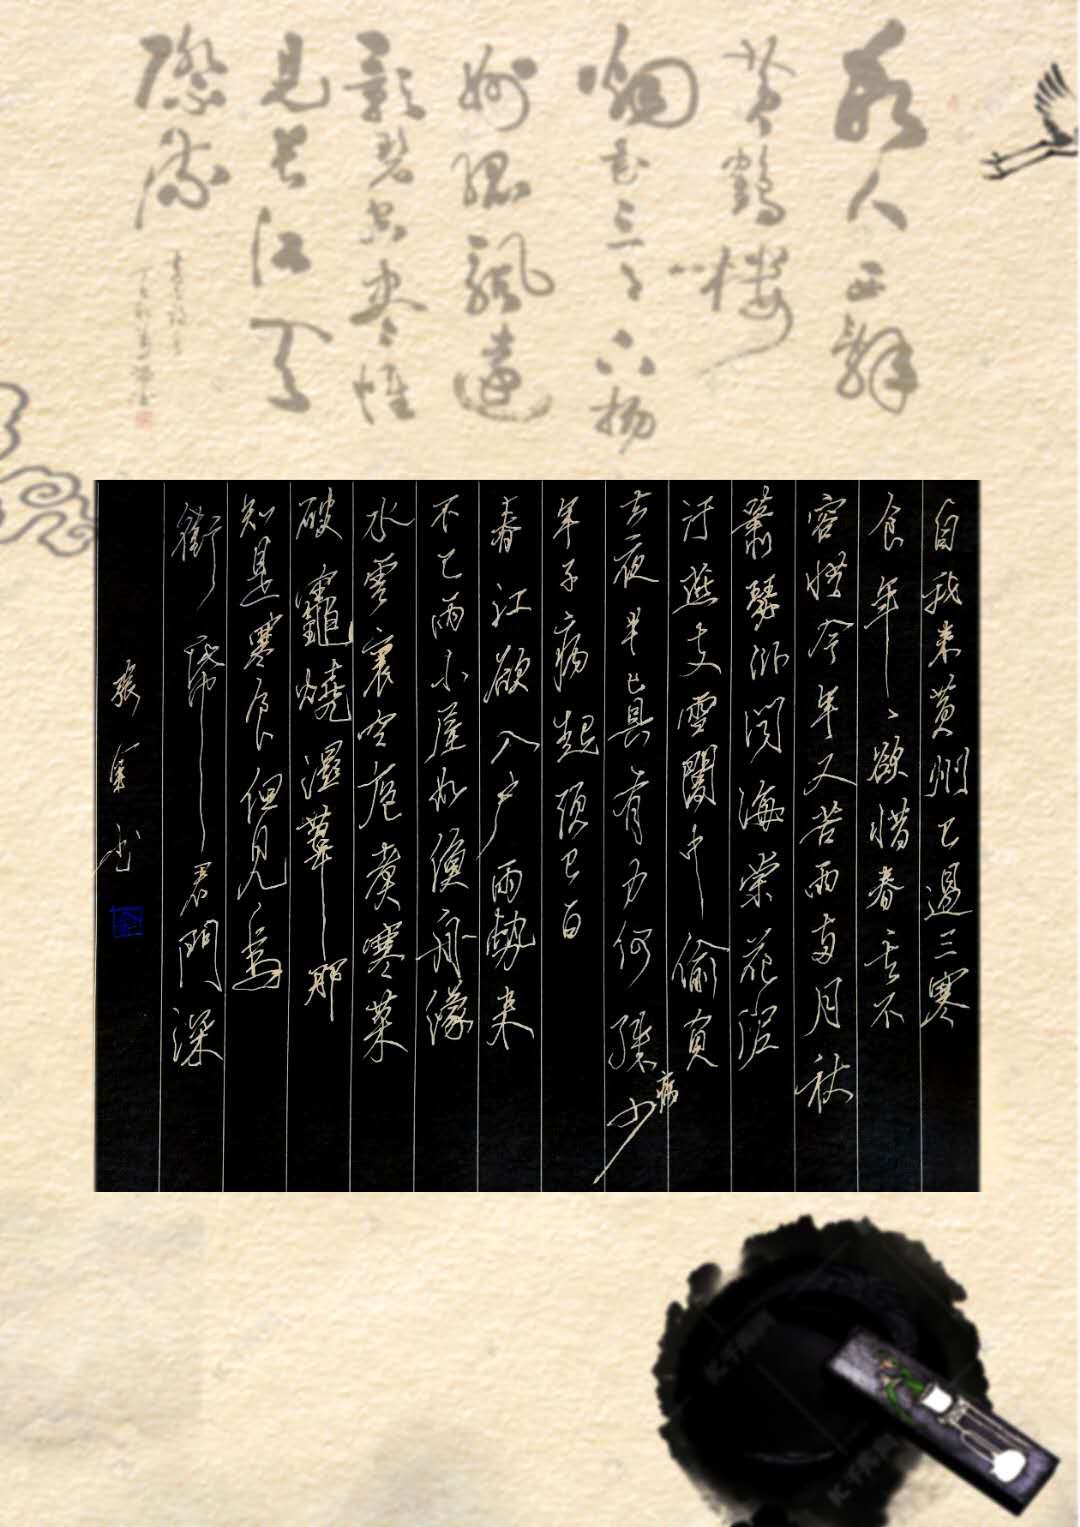 故人西辞
黄鹤楼
烟花三月下扬
州孤帆远
影碧空尽惟
见长江天
际流
自我来黄州已過三寒
食年〻欲惜春去不
容惜今年又苦雨两月秋
蕭瑟卧闻海棠花泥
汙燕支雪闇中偷負
去夜半真有力何殊少病
年子病起须已白
春江欲入户雨勢来
不已雨小屋如漁舟濛
水雲裏空庖煮寒菜
破竈燒濕葦那
知是寒食但見烏
銜帋君門深
張书